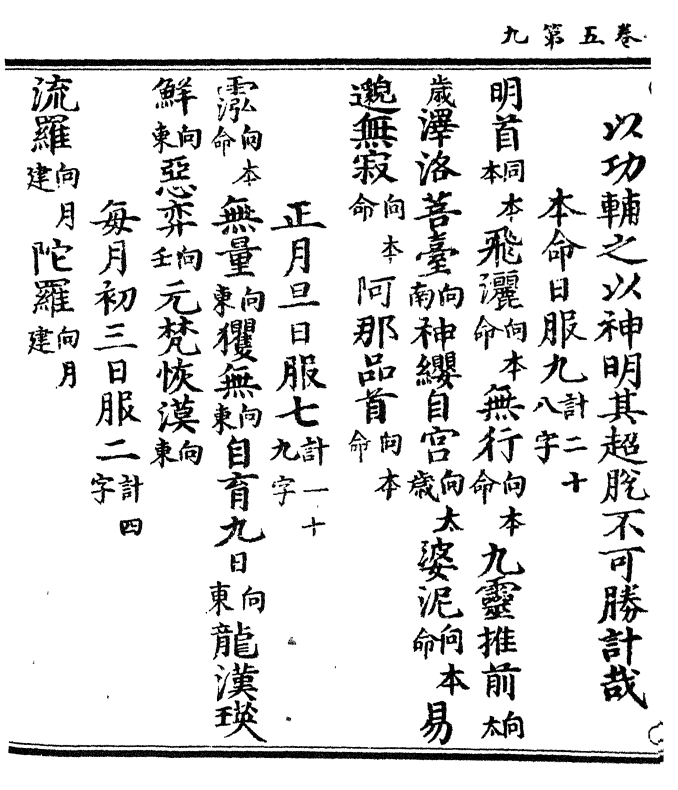 卷五第九
以功輔之以神明其超脫不可勝計哉
本命日服九計二十八字
明首同本本飛灑向本命無行向本命九靈推前向太
歲澤洛菩臺向南神纓自宮向太歲婆泥向本命易
邈無寂向本命阿那品首向本命
正月旦日服七計一十九字
霐向本命無量向東玃無向東自育九日向東龍漢瑛
鮮向東惡弈向壬元梵恢漠向東
每月初三日服二計四字
流羅向月建陀羅向月建